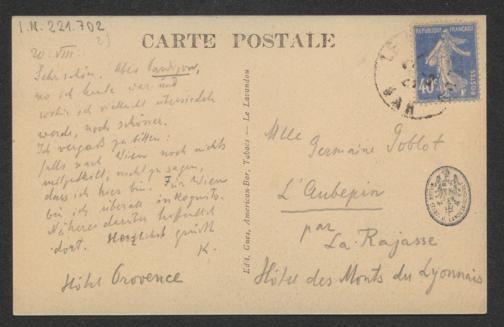 I.N. 221.702
2)
CARTE POSTALE
20. VIII.
Sehr schön. Aber Cavalaire,
wo ich heute war und
wohin ich vielleicht übersiedeln
werde, noch schöner.
Ich vergaß zu bitten:
falls nach Wien noch nichts
mitgetheilt, nicht zu sagen,
dass ich hier bin. Für Wien
bin ich überall inkognito.
Näheres darüber hoffentlich
dort. Herzlichst grüßt
K.
Hôtel Provence
Edit. Gues, American-Bar, Tabacs - Le Lavandou
REPUBLIQUE FRANÇAISE
40c
POSTES
VAR
Mlle
Germaine Goblot
L'Aubépin
par
La Rajasse
Hôtel des Monts du Lyonnais